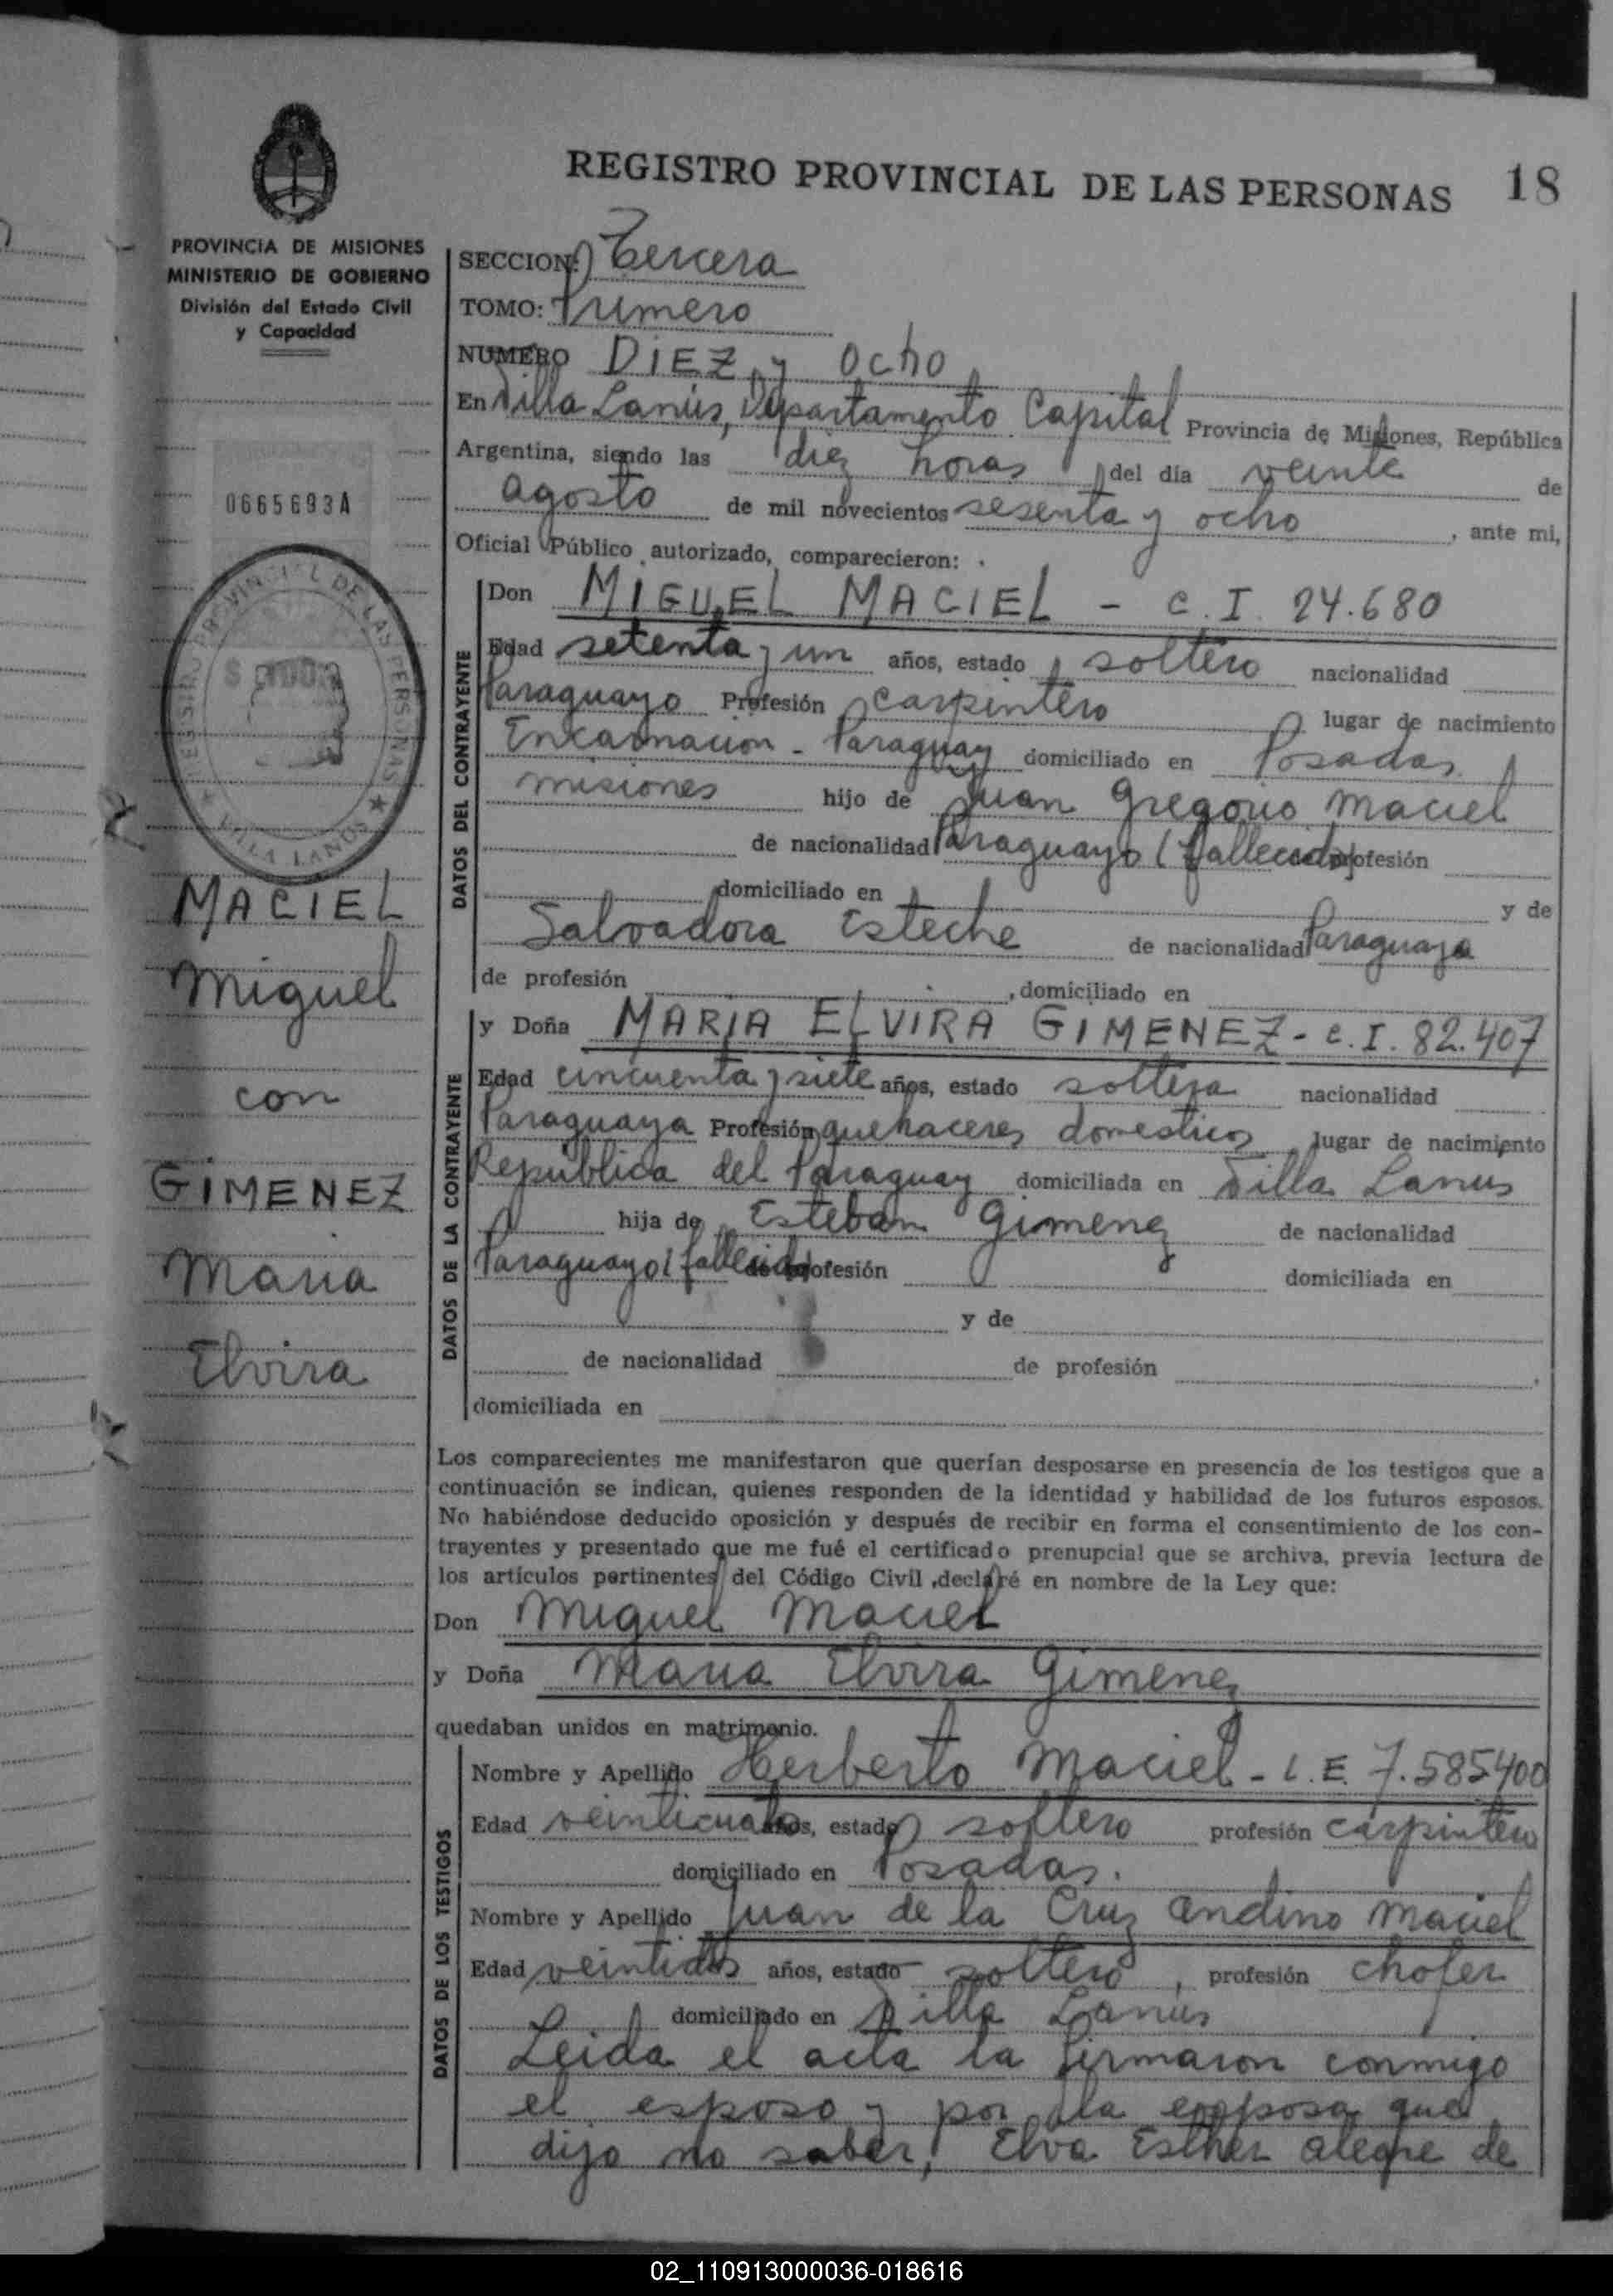 REGISTRO PROVINCIAL DE LAS PERSONAS 18
PROVINCIA DE MISIONES
MINISTERIO DE GOBIERNO
División del Estado Civil
y Capacidad
0665693A
REGISTRO PROVINCIAL DE LAS PERSONAS
VILLA LANUS
MACIEL
Miguel
con
GIMENEZ
Maria
Elvira
SECCION: Tercera
TOMO: Primero
NUMERO DIEZ y Ocho
En Villa Lanús, Departamento Capital Provincia de Misiones, República
Argentina, siendo las diez horas del día veinte de
agosto de mil novecientos sesenta y ocho, ante mi,
Oficial Público autorizado, comparecieron:
DATOS DEL CONTRAYENTE
Don MIGUEL MACIEL - C.I. 24.680
Edad setenta y un años, estado soltero nacionalidad
Paraguayo Profesión carpintero lugar de nacimiento
Encarnacion - Paraguay domiciliado en Posadas
misiones hijo de Juan Gregorio Maciel
de nacionalidad Paraguayo (fallecido) profesión
domiciliado en y de
Salvadora Esteche de nacionalidad Paraguaya
de profesión , domiciliado en
DATOS DE LA CONTRAYENTE
y Doña MARIA ELVIRA GIMENEZ - C.I. 82.407
Edad cincuenta y siete años, estado soltera nacionalidad
Paraguaya Profesión quehaceres domesticos lugar de nacimiento
Republica del Paraguay domiciliada en Villa Lanus
hija de Esteban Gimenez de nacionalidad
Paraguayo (fallecido) profesión domiciliada en
y de
de nacionalidad de profesión ,
domiciliada en
Los comparecientes me manifestaron que querían desposarse en presencia de los testigos que a
continuación se indican, quienes responden de la identidad y habilidad de los futuros esposos.
No habiéndose deducido oposición y después de recibir en forma el consentimiento de los con-
trayentes y presentado que me fué el certificado prenupcial que se archiva, previa lectura de
los artículos pertinentes del Código Civil ,declaré en nombre de la Ley que:
Don Miguel Maciel
y Doña Maria Elvira Gimenez
quedaban unidos en matrimonio.
DATOS DE LOS TESTIGOS
Nombre y Apellido Herberto Maciel - L.E. 7.585400
Edad veinticuatro años, estado soltero profesión carpintero
domiciliado en Posadas.
Nombre y Apellido Juan de la Cruz Andino Maciel
Edad veintidos años, estado soltero, profesión chofer
domiciliado en Villa Lanús
Leida el acta la firmaron conmigo
el esposo y por la esposa que
dijo no saber, Elva Esther Alegre de
02_110913000036-018616